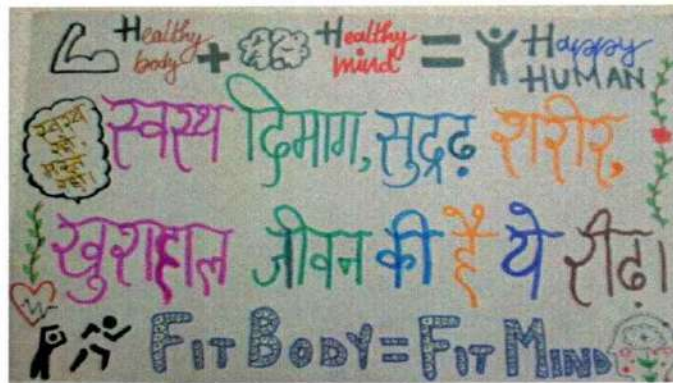 Healthy body + Healthy mind = Happy HUMAN
स्वस्थ दिमाग, सुद्रढ़ शरीर,
खुशहाल जीवन की है ये रीढ़।
FIT BODY = FIT MIND